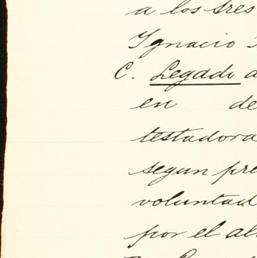 a los tres
Ignacio
C. Legado a
en de
testadora
segun pre
voluntad
por el al